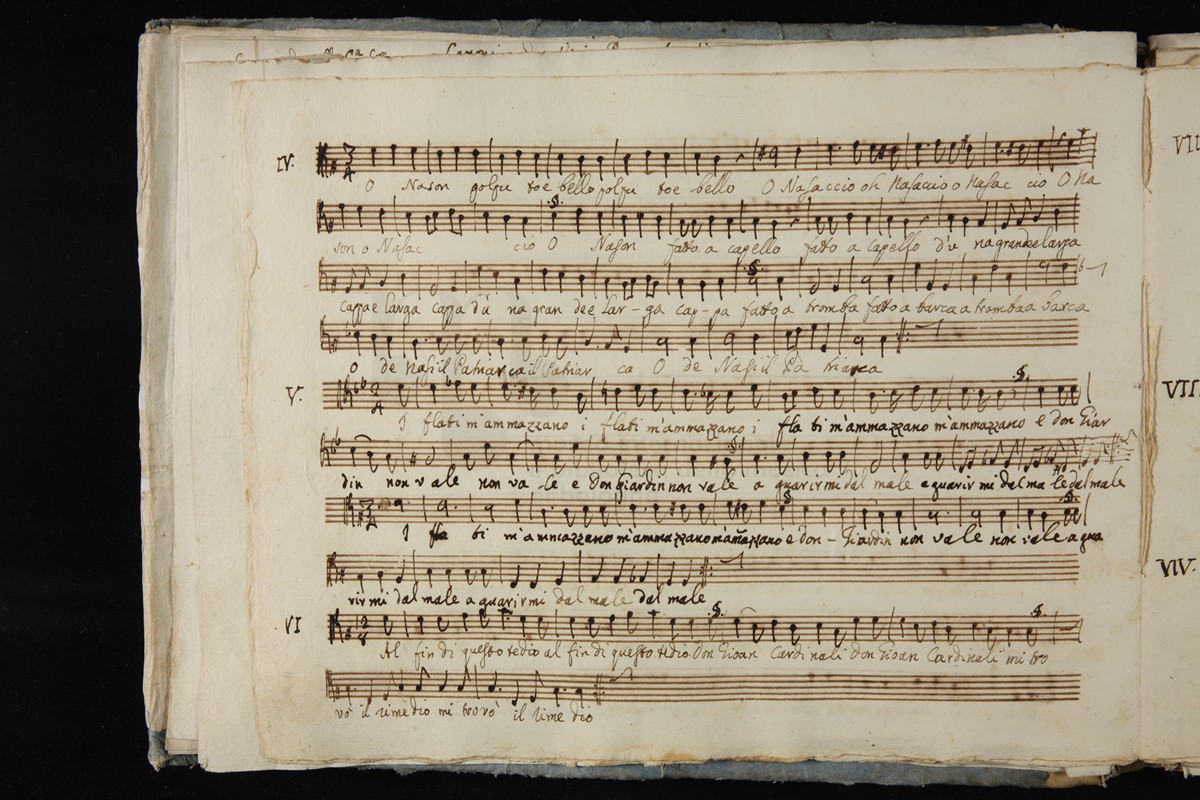 IV.
O Nason golfu toe bello golfu toe bello O Nasaccio oh Nasaccio o Nasac cio O Na
son o Nasac cio O Nason fatto a capello fatto a capello d'u na grande larga
cappa e larga cappa d'u na gran de e Lar - ga cap - pa fatto a tromba fatto a barca a tromba a barca
O de Nasi il Patriarca il Patriar ca O de Nasi il Pa triarca
V.
I flati m'ammazzano i flati m'ammazzano i fla ti m'ammazzano m'ammazzano e don Giar
din non vale non va - le e Don Giardin non vale a guarirmi dal male a guarir mi dal ma le dal male
I fla ti m'ammazzano m'ammazzano m'ammazzano e don - Giardin non vale non vale a gua
rir mi dal male a guarirmi dal male dal male
VI
Al fin di questo tedio al fin di questo tedio Don Gioan Cardinali Don Gioan Cardinali mi tro
vò il rimedio mi trovò il rime dio
VII
VII
VIV.